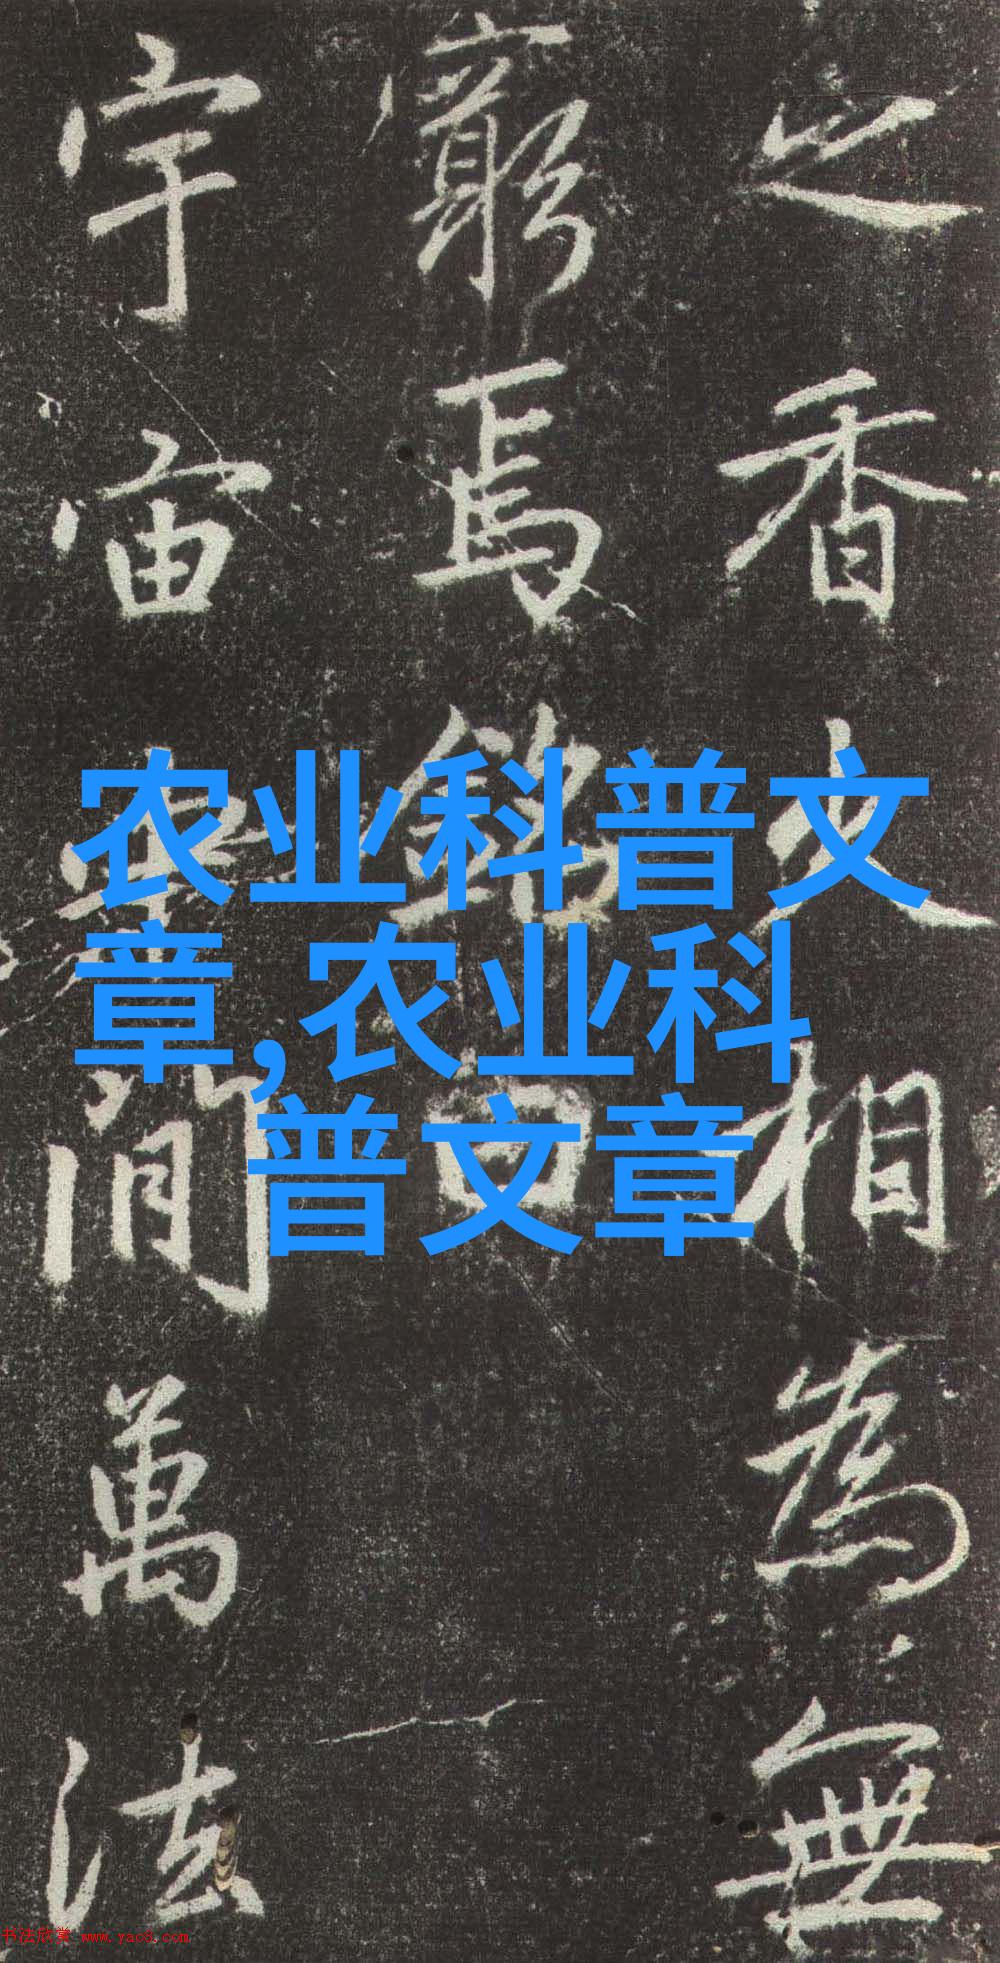 之香火相為無
窮焉銘曰
宇宙之間萬法
农业科普文
章,农业科
普文章
书法欣赏 www.yac8.com